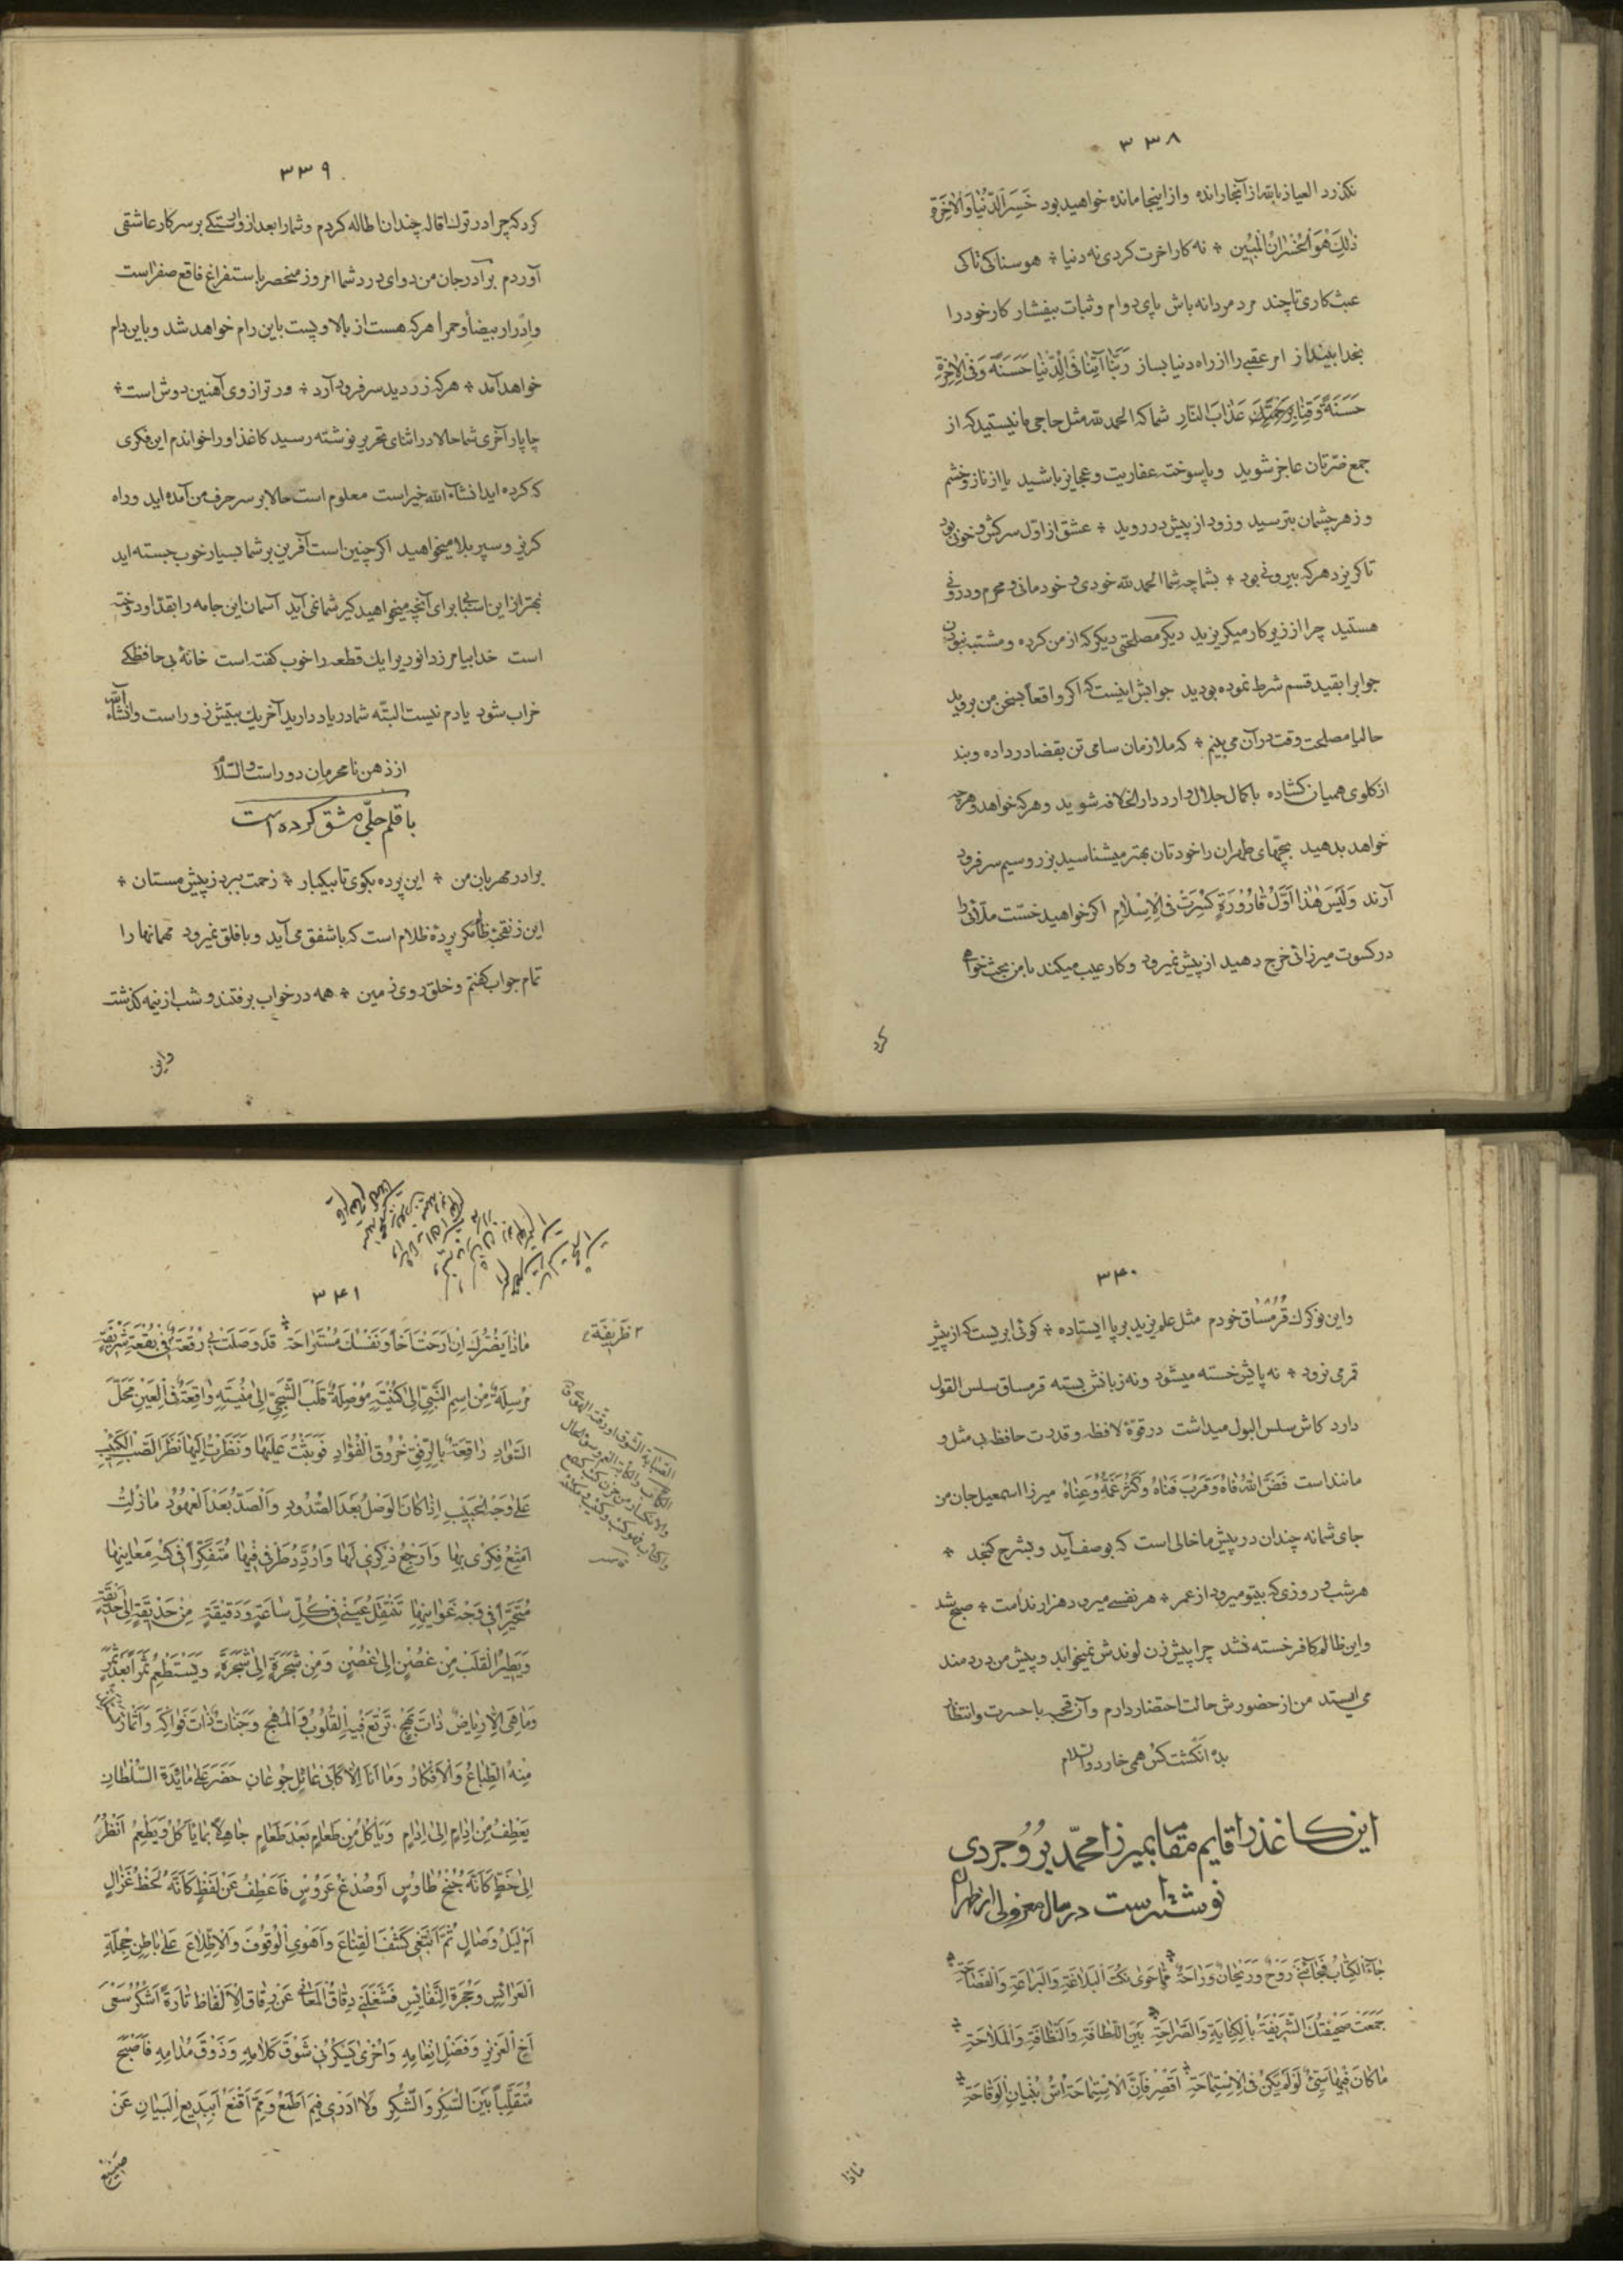 ۳۳۸
نکذرد العیاذ بالله از آنجا رانده و از اینجا مانده خواهید بود خَسِرَ الدُّنْیا وَالْاٰخِرَة
ذٰلِكَ هُوَ الْخُسْرٰانُ الْمُبٖین ٭ نه کار اخرت کردی نه دنیا ٭ هوسناکی تاکی
عبث کاری تا چند مرد مردانه باش پای دوام و ثبات بیفشار کار خود را
بخدا بینداز امر عقبی را از راه دنیا بساز رَبَّنٰا آتِنٰا فِی الدُّنْیٰا حَسَنَةً وَفِی الْاٰخِرَةِ
حَسَنَةً وَقِنٰا بِرَحْمَتِكَ عَذٰابَ النّٰارِ شما که الحمد لله مثل حاجی ما نیستید که از
جمع ضرّتان عاجز شوید و پاسوخته عفاریت و عجایز باشید یا از ناز و خشم
و زهر چشمان بترسید و زود از پیش در روید ٭ عشق از اوّل سرکش و خونی بود
تا کریزد هر که بیرونی بود ٭ بشما چه شما الحمد لله خودی و خودمانی و محرم و درونی
هستید چرا از زیر کار میکریزید دیکر مصلحتی دیکر که از من کرده و مشتبه نبودن
جوابرا بقید قسم شرط نموده بودید جوابش اینست که اکر واقعاً بسخن من بروید
حالیا مصلحت وقت در آن می بینم ٭ که ملازمان سامی تن بقضا در داده و بند
از کلوی همیان کشاده باکمال جلال وارد دار الخلافه شوید و هر که خواهد و هر چه
خواهد بدهید بچهای طهران را خودتان بهتر میشناسید بزر و سیم سر فرود
آرند وَلَیْسَ هٰذٰا اَوَّلَ قٰارُورَةٍ کُسِرَتْ فِی الْاِسْلٰامِ اکر خواهید خسّت ملّائی را
در کسوت میرزائی خرج دهید از پیش نمیرود و کار عیب میکند با من بحث خواهی
کرد
۳۳۹
کرد که چرا در ترك اقاله چندان اطاله کردم و شما را بعد از وارستکی بر سر کار عاشقی
آوردم برادر جان من دوای درد شما امروز منحصر باستفراغ فاقع صفراست
و ادرار بیضا و حمرا هر که هست از بالا و پست باین رام خواهد شد و باین دام
خواهد آمد ٭ هر که زر دید سر فرود آرد ٭ ور ترازوی آهنین دوش است ٭
چاپار آخری شما حالا در اثنای تحریر نوشته رسید کاغذ او را خواندم این فکری
که کرده اید انشاء الله خیر است معلوم است حالا بر سر حرف من آمده اید و راه
کریز و سپر بلا میخواهید اکر چنین است آفرین بر شما بسیار خوب جسته اید
بهتر از این اسبابی برای آنچه میخواهید کیر شما نمی آید آسمان این جامه را بقدّ او دوخته
است خدا بیامرزد انوریرا یك قطعه را خوب کفته است خانهٔ بی حافظکی
خراب شود یادم نیست البتّه شما در یاد دارید آخر یك بیتش زور است و انشاء الله
از ذهن نامحرمان دور است والسّلام
با قلم جلّی مشق کرده است
برادر مهربان من ٭ این پرده بکوی تا بیکبار ٭ زحمت ببرد ز پیش مستان ٭
این زن قحبه ظا مکر پردهٔ ظلام است که با شفق می آید و با فلق نمیرود مهمانها را
تمام جواب کفتم و خلق روی زمین ٭ همه در خواب برفتند و شب از نیمه کذشت
واین
۳۴۰
واین نوکرك قرمساق خودم مثل علم یزید بر پا ایستاده ٭ کوئی ابریست که از پیش
قمر می نرود ٭ نه پایش خسته میشود و نه زبانش بسته قرمساق سلس القول
دارد کاش سلس البول میداشت در قوّهٔ لافظه و قدرت حافظه بی مثل و
مانند است فَضَّ اللهُ فٰاهُ وَقَرَّبَ فَنٰاهُ وَکَثَّرَ غَمَّهُ وَعِنٰاهُ میرزا اسمعیل جان من
جای شما نه چندان در پیش ما خالی است که بوصف آید و بشرح کنجد ٭
هر شب و روزی که بیتو میرود از عمر ٭ هر نفسی میرود هزار ندامت ٭ صبح شد
واین ظالم کافر خسته نشد چرا پیش زن لوندش نمیخوابد و پیش من دردمند
می ایستد من از حضورش حالت احتضار دارم و آن قحبه با حسرت وانتظار
بده انکشت کس همی خارد والسلام
این کاغذ را قایم مقام بمیرزا محمّد بروجردی
نوشته است در حال معزولی از طهران
جٰآءَ الْکِتٰابُ فَجٰائَنٖی رَوْحٌ وَرَیْحٰانٌ وَرٰاحَةٌ ٭ مِمّٰا حَوٰی نُکَتَ الْبَلٰاغَةِ وَالْبَرٰاعَةِ وَالْفَصٰاحَةِ ٭
جَمَعَتْ صَحٖیفَتُكَ الشَّرٖیفَةُ بِالْکِنٰایَةِ وَالصَّرٰاحَةِ ٭ بَیْنَ اللَّطٰافَةِ وَالنَّظٰافَةِ وَالْمَلٰاحَةِ ٭
مٰا کٰانَ فٖیهٰا سَیِّئٌ لَوْلَمْ یَکُنْ فِی الْاِسْتِمٰاحَةِ ٭ اَقْصِرْ فَاِنَّ الْاِسْتِمٰاحَةَ اُسُّ بُنْیٰانِ الْوَقٰاحَةِ ٭
ماذا
۳۴۱
مٰاذٰا یَضُرُّكَ اِنْ اَرَحْتَ اَخاً وَنَفْسُكَ مُسْتَرٰاحَة ٭ قَدْ وَصَلَتْ بٖی رُقْعَةٌ فٖی بُقْعَةٍ شَرٖیفَةٍ
ظَرٖیفَةٍ
مُرْسِلَةٌ مِنْ اِسْمِ النَّبِیِّ اِلٰی کُنْیَتِهِ مُوْصِلَةٌ قَلْبَ الشَّجِیِّ اِلٰی مُنْیَتِهِ وٰاقِعَةٌ فِی الْعَیْنِ مَحَلَّ
السَّوٰادِ رٰاقِعَةٌ بِالرِّفْقِ خُرُوقَ الْفُؤٰادِ فَوَثَبْتُ عَلَیْهٰا وَنَظَرْتُ اِلَیْهٰا نَظَرَ الصَّبِّ الْکَئٖیبِ
عَلٰی وَجْهِ الْحَبٖیبِ اِذٰا کٰانَ الْوَصْلُ بَعْدَ الصُّدُودِ وَالصَّدُّ بَعْدَ الْعُهُودِ مٰازِلْتُ
اُمَتِّعُ فِکْرٖی بِهٰا وَاُرَجِّعُ ذِکْرٖی لَهٰا وَاُرَدِّدُ طَرْفٖی فٖیهٰا مُتَفَکِّراً فٖی کُنْهِ مَعٰانٖیهٰا
مُتَحَیِّراً فٖی وَجْهِ غَوٰانٖیهٰا تَنْتَقِلُ عَیْنٖی فٖی کُلِّ سٰاعَةٍ وَدَقٖیقَةٍ مِنْ حَدٖیقَةٍ اِلٰی حَدٖیقَةٍ
وَیَطٖیرُ الْقَلْبُ مِنْ غُصْنٍ اِلٰی غُصْنٍ وَمِنْ شَجَرَةٍ اِلٰی شَجَرَةٍ وَیَسْتَطْعِمُ ثَمَراً بَعْدَ ثَمَرٍ
وَمٰا هِیَ اِلّٰا رِیٰاضٌ ذٰاتُ بَهَجٍ تَرْتَعُ فٖیهِ الْقُلُوبُ وَالْمُهَجُ وَجَنّٰاتٌ ذٰاتُ فَوٰاکِهَ وَاَثْمٰارٍ
مِنْهُ الطِّبٰاعُ وَالْاَفْکٰارُ وَمٰا اَنَا اِلّٰا کَاَنّٖی عٰائِلٌ جُوعٰانٌ حَضَرَ عَلٰی مٰائِدَةِ السُّلْطٰانِ
یَعْطِفُ مِنْ اِدٰامٍ اِلٰی اِدٰامٍ وَیَأْکُلُ مِنْ طَعٰامٍ بَعْدَ طَعٰامٍ جٰاهِلاً بِمٰا یَأْکُلُ وَیَطْعَمُ اَنْظُرُ
اِلٰی خَطٍّ کَاَنَّهُ جُنْحُ طٰاوُسٍ اَوْ صُدْغُ عَرُوسٍ فَاَعْطِفُ عَنْ لَفْظٍ کَاَنَّهُ لَحْظُ غَزٰالٍ
اَمْ لَیْلُ وِصٰالٍ ثُمَّ اَبْتَغٖی کَشْفَ الْقِنٰاعِ وَاَهْوَی الْوُقُوفَ وَالْاِطِّلٰاعَ عَلٰی بٰاطِنِ حِجْلَةِ
الْعَرٰائِسِ وَحُجْرَةِ النَّفٰائِسِ فَشَغَلَنٖی دِقٰاقُ الْمَعٰانٖی عَنْ رِقٰاقِ الْاَلْفٰاظِ تٰارَةً اَشْکُرُ سَعْیَ
اَخِ الْعَزٖیزِ وَفَضْلَ اِنْعٰامِهِ وَاُخْرٰی یُسْکِرُنٖی شَوْقُ کَلٰامِهِ وَذَوْقُ مُدٰامِهِ فَاَصْبَحَ
مُتَقَلِّباً بَیْنَ السُّکْرِ وَالشُّکْرِ وَلٰا اَدْرٖی فٖیمَ اَطْمَعُ وَبِمَ اَقْنَعُ اَبِبَدٖیعِ الْبَیٰانِ عَنْ
صنیع